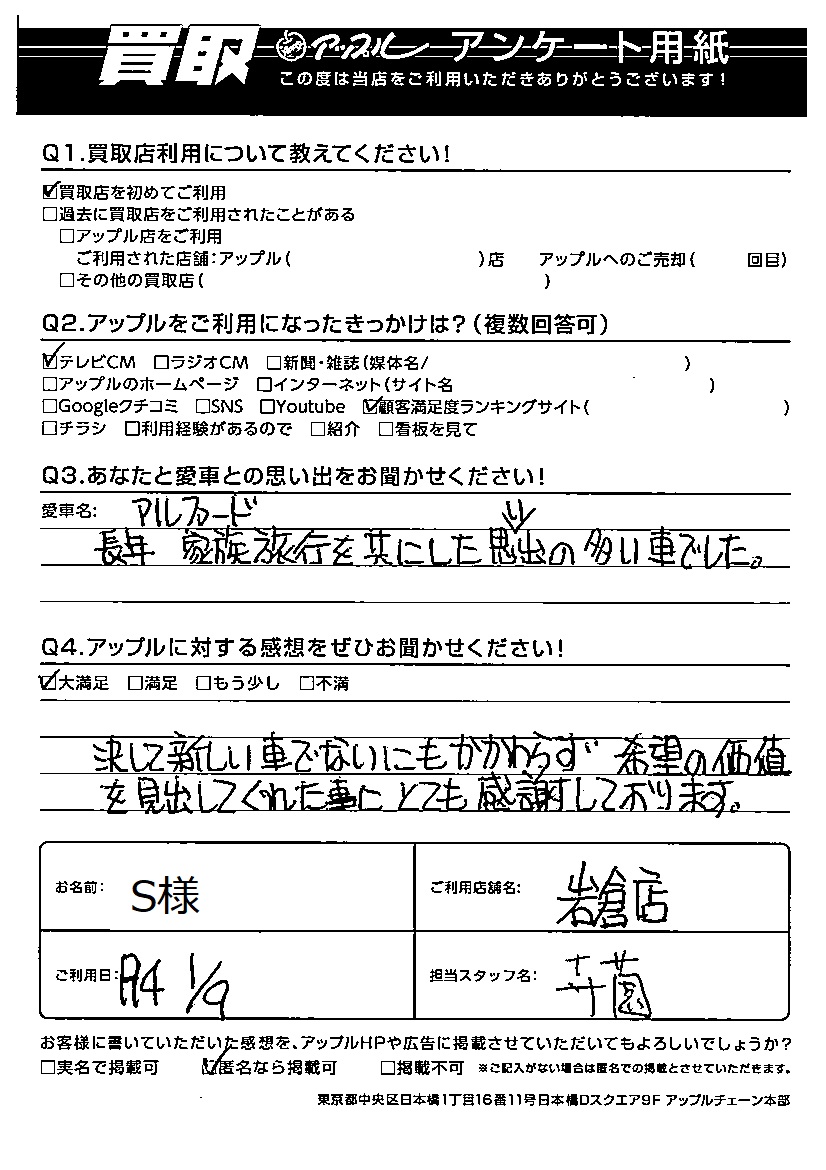 買取 アップル アンケート用紙
この度は当店をご利用いただきありがとうございます!
Q1.買取店利用について教えてください!
☑買取店を初めてご利用
□過去に買取店をご利用されたことがある
□アップル店をご利用
ご利用された店舗:アップル( )店 アップルへのご売却( 回目)
□その他の買取店( )
Q2.アップルをご利用になったきっかけは?(複数回答可)
☑テレビCM □ラジオCM □新聞・雑誌(媒体名/ )
□アップルのホームページ □インターネット(サイト名 )
□Googleクチコミ □SNS □Youtube ☑顧客満足度ランキングサイト( )
□チラシ □利用経験があるので □紹介 □看板を見て
Q3.あなたと愛車との思い出をお聞かせください!
愛車名: アルファード
長年 家族旅行を共にした思い出の多い車でした。
Q4.アップルに対する感想をぜひお聞かせください!
☑大満足 □満足 □もう少し □不満
決して新しい車でないにもかかわらず 希望の価値
を見出してくれた事にとても感謝しております。
お名前: S様 ご利用店舗名: 岩倉店
ご利用日: R4 1/9 担当スタッフ名:
お客様に書いていただいた感想を、アップルHPや広告に掲載させていただいてもよろしいでしょうか?
□実名で掲載可 ☑匿名なら掲載可 □掲載不可 ※ご記入がない場合は匿名での掲載とさせていただきます。
東京都中央区日本橋1丁目16番11号日本橋Dスクエア9F アップルチェーン本部